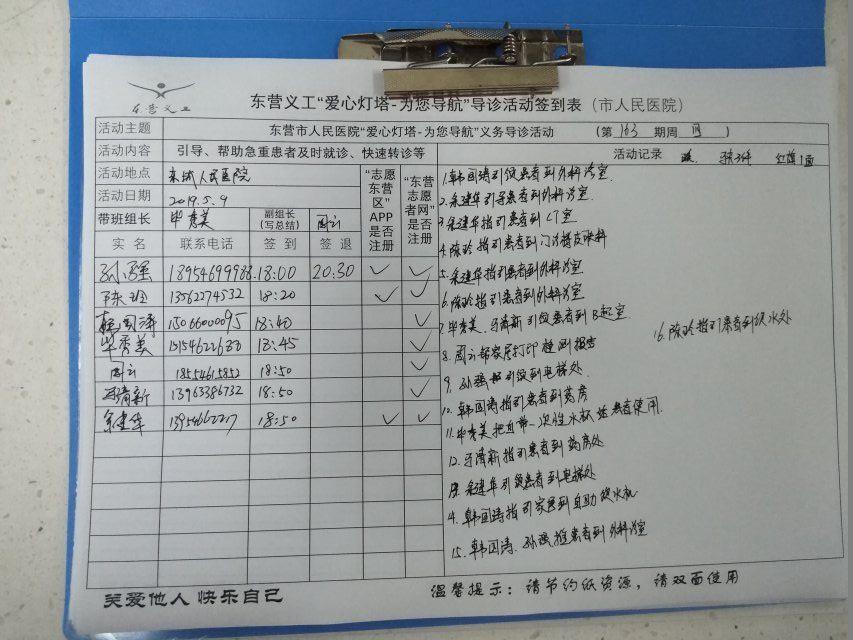 东营义工
东营义工“爱心灯塔-为您导航”导诊活动签到表（市人民医院）
活动主题 东营市人民医院“爱心灯塔-为您导航”义务导诊活动 （第 163 期周 四 ）
活动内容 引导、帮助急重患者及时就诊、快速转诊等 活动记录
活动地点 东城人民医院
活动日期 2019.5.9
带班组长 毕秀美 副组长（写总结） 周云
“志愿东营区”APP是否注册
“东营志愿者网”是否注册
实名 联系电话 签到 签退
孙强 18954699988 18:00 20:30 ✓ ✓
陈玲 13562274532 18:20 ✓ ✓
韩国涛 15066000095 18:40 ✓
毕秀美 18:45 ✓
周云 18554615852 18:50 ✓
马清新 13963386732 18:50 ✓
朱建华 18:50 ✓ ✓
1.韩国涛引领患者到外科诊室.
2.朱建华引导患者到外科诊室.
3.朱建华指引患者到CT室
4.陈玲指引患者到门诊
5.朱建华指引患者到外科诊室
6.陈玲指引患者到外科诊室
7.毕秀美、马清新引领患者到B超室
8.周云帮家属打印检测报告
9.孙强引领到电梯处.
10.韩国涛指引患者到药房
11.毕秀美把自带一次性水杯给患者使用.
12.马清新指引患者到药房处
13.朱建华引领患者到电梯处
14.韩国涛指引家属到自助饮水机
15.韩国涛.孙强推患者到外科诊室
16.陈玲指引患者到饮水处
关爱他人 快乐自己
温馨提示：请节约纸资源，请双面使用